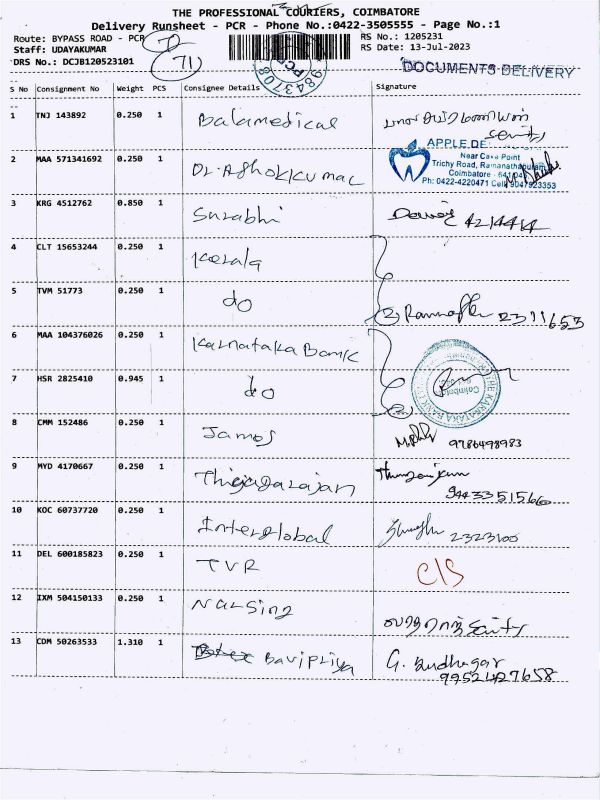 THE PROFESSIONAL COURIERS, COIMBATORE
Delivery Runsheet - PCR - Phone No.:0422-3505555 - Page No.:1
Route: BYPASS ROAD - PCR
RS No.: 1205231
Staff: UDAYAKUMAR
RS Date: 13-Jul-2023
DRS No.: DCJB120523101
71
9843708
PCR
DOCUMENTS DELIVERY
S No Consignment No Weight PCS Consignee Details Signature
1 TNJ 143892 0.250 1 Balamedical
2 MAA 571341692 0.250 1 Dr. Ashokkumar
APPLE DE
Near Cava Point
Trichy Road, Ramanathapuram,
Coimbatore - 641045
Ph: 0422-4220471 Cell: 9047923353
3 KRG 4512762 0.850 1 Surabhi 4214414
4 CLT 15653244 0.250 1 Kerala
5 TVM 51773 0.250 1 do 2311653
6 MAA 104376026 0.250 1 Karnataka Bank
7 HSR 2825410 0.945 1 do
THE KARNATAKA BANK
Coimbatore
8 CMM 152486 0.250 1 Jamos 9786498983
9 MYD 4170667 0.250 1 Thigagarajan 9443351566
10 KOC 60737720 0.250 1 Interglobal 2323100
11 DEL 600185823 0.250 1 TVR C/S
12 IXM 504150133 0.250 1 Nursing
13 CDM 50263533 1.310 1 Bavipriya G. Sudhagar
9952427658